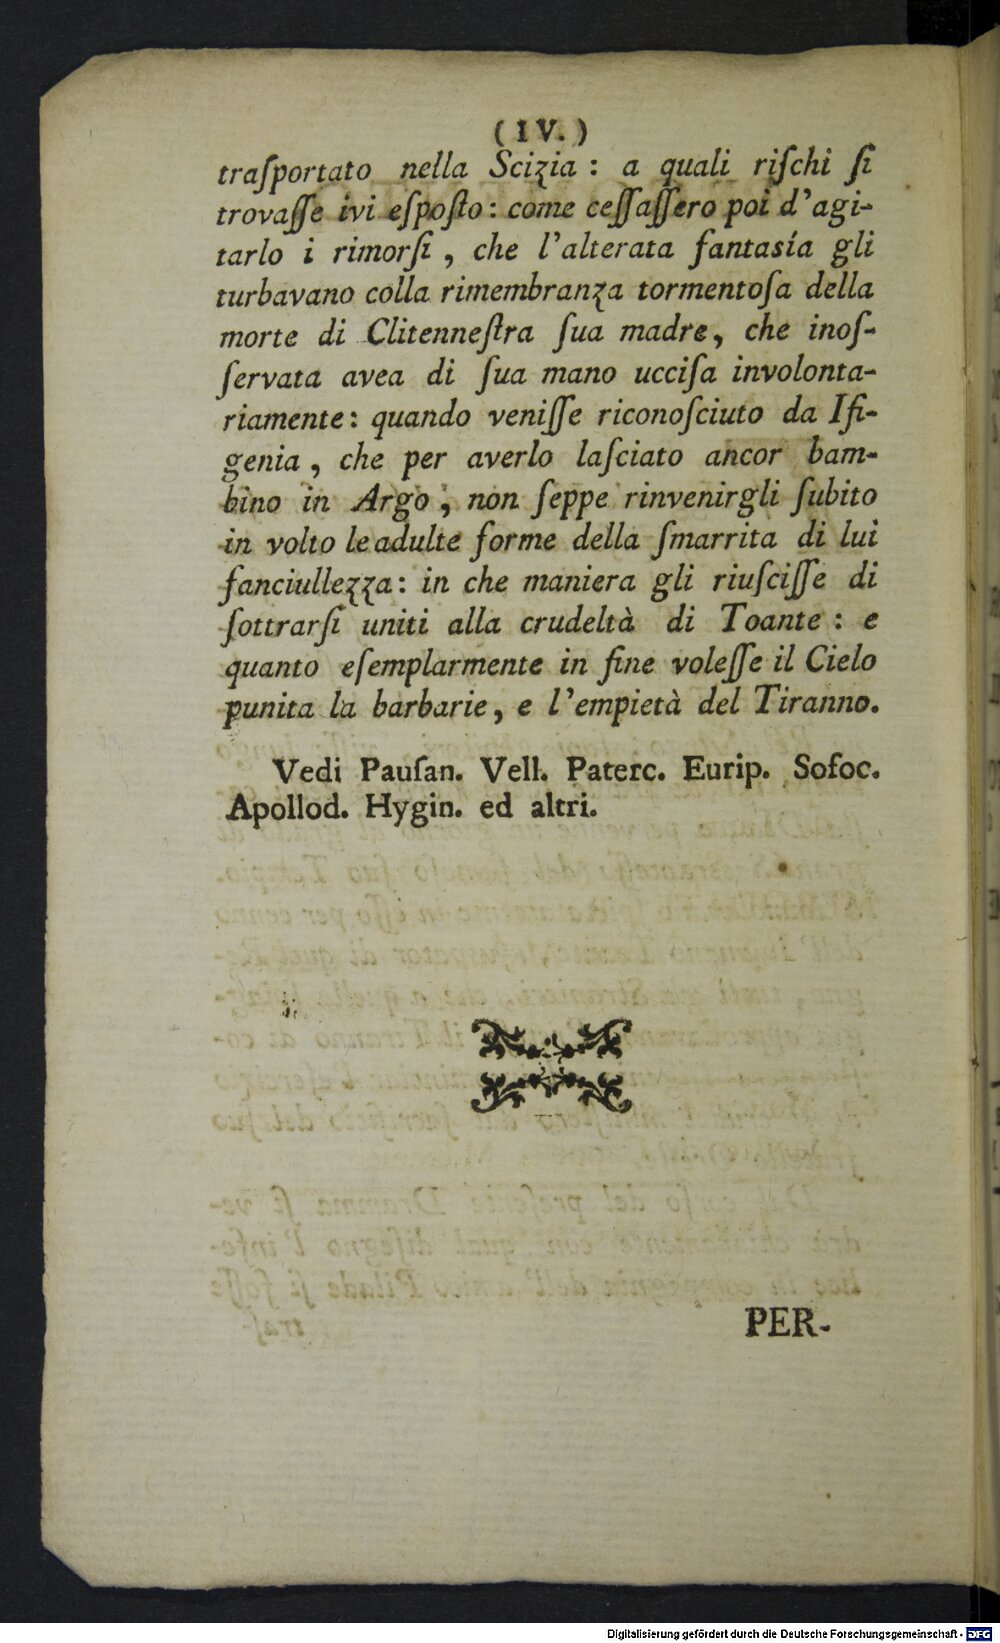 ( IV. )
traſportato nella Scizia : a quali riſchi ſi
trovaſſe ivi eſpoſto : come ceſſaſſero poi d'agi-
tarlo i rimorſi , che l'alterata fantasía gli
turbavano colla rimembranza tormentoſa della
morte di Clitenneſtra ſua madre, che inoſ-
ſervata avea di ſua mano ucciſa involonta-
riamente : quando veniſſe riconoſciuto da Ifi-
genia , che per averlo laſciato ancor bam-
bino in Argo , non ſeppe rinvenirgli ſubito
in volto le adulte forme della ſmarrita di lui
fanciullezza : in che maniera gli riuſciſſe di
ſottrarſi uniti alla crudeltà di Toante : e
quanto eſemplarmente in fine voleſſe il Cielo
punita la barbarie, e l'empietà del Tiranno.
Vedi Pauſan. Vell. Paterc. Eurip. Sofoc.
Apollod. Hygin. ed altri.
PER-
Digitalisierung gefördert durch die Deutsche Forschungsgemeinschaft - DFG